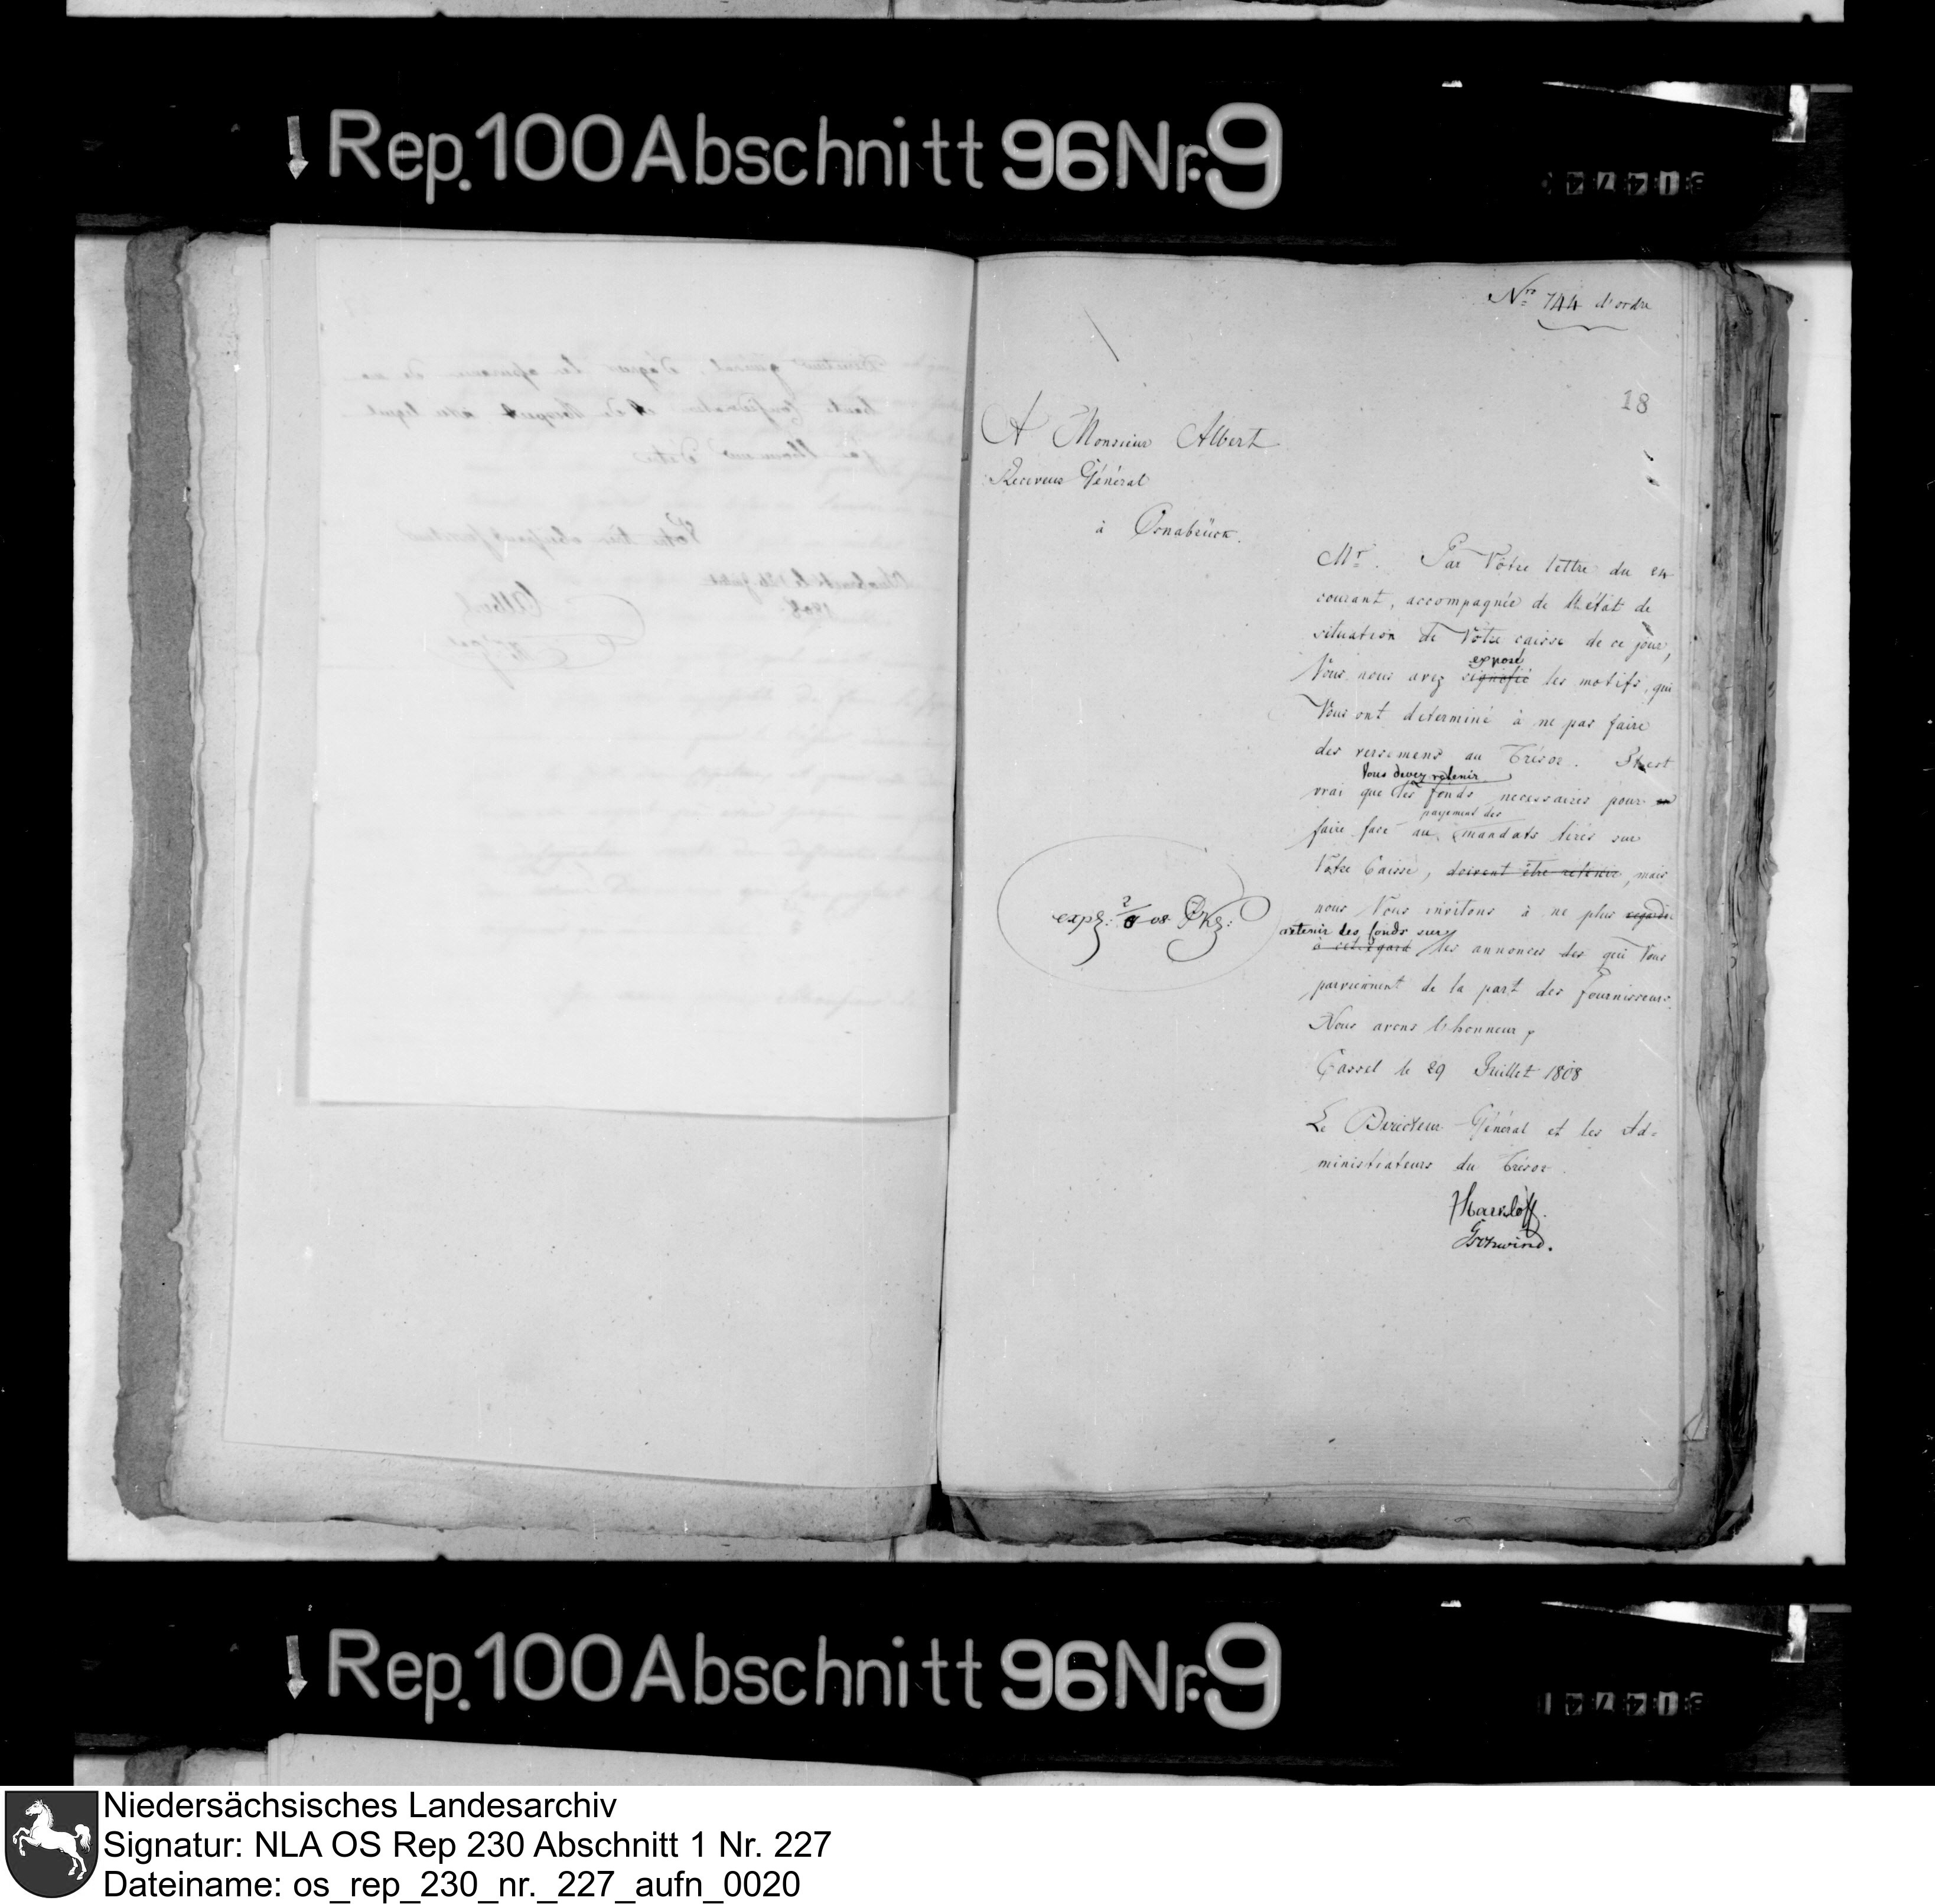 Rep. 100 Abschnitt 96 Nr. 9
Nro 744 d'ordre
18
A Monsieur Albert
Receveur Général
à Osnabrück.
Mr. Par Votre lettre du 24
courant, accompagnée de l'état de
situation de Votre caisse de ce jour,
exposé
Vous nous avez signifié les motifs, qui
Vous ont determiné à ne pas faire
des versemens au Trésor. Il est
Vous devez retenir
vrai que les fonds necessaires pour
payement des
faire face au mandats tirés sur
Votre Caisse, doivent être retenir, mais
nous Vous invitons à ne plus regarder
retenir des fonds sur
à cet égard les annonces des qui Vous
parviennent de la part des fournisseurs.
Nous avons l'honneur,
Cassel le 29 Juillet 1808
Le Directeur Général et les Ad-
ministrateurs du Trésor.
Rep. 100 Abschnitt 96 Nr. 9
Niedersächsisches Landesarchiv
Signatur: NLA OS Rep 230 Abschnitt 1 Nr. 227
Dateiname: os_rep_230_nr._227_aufn_0020